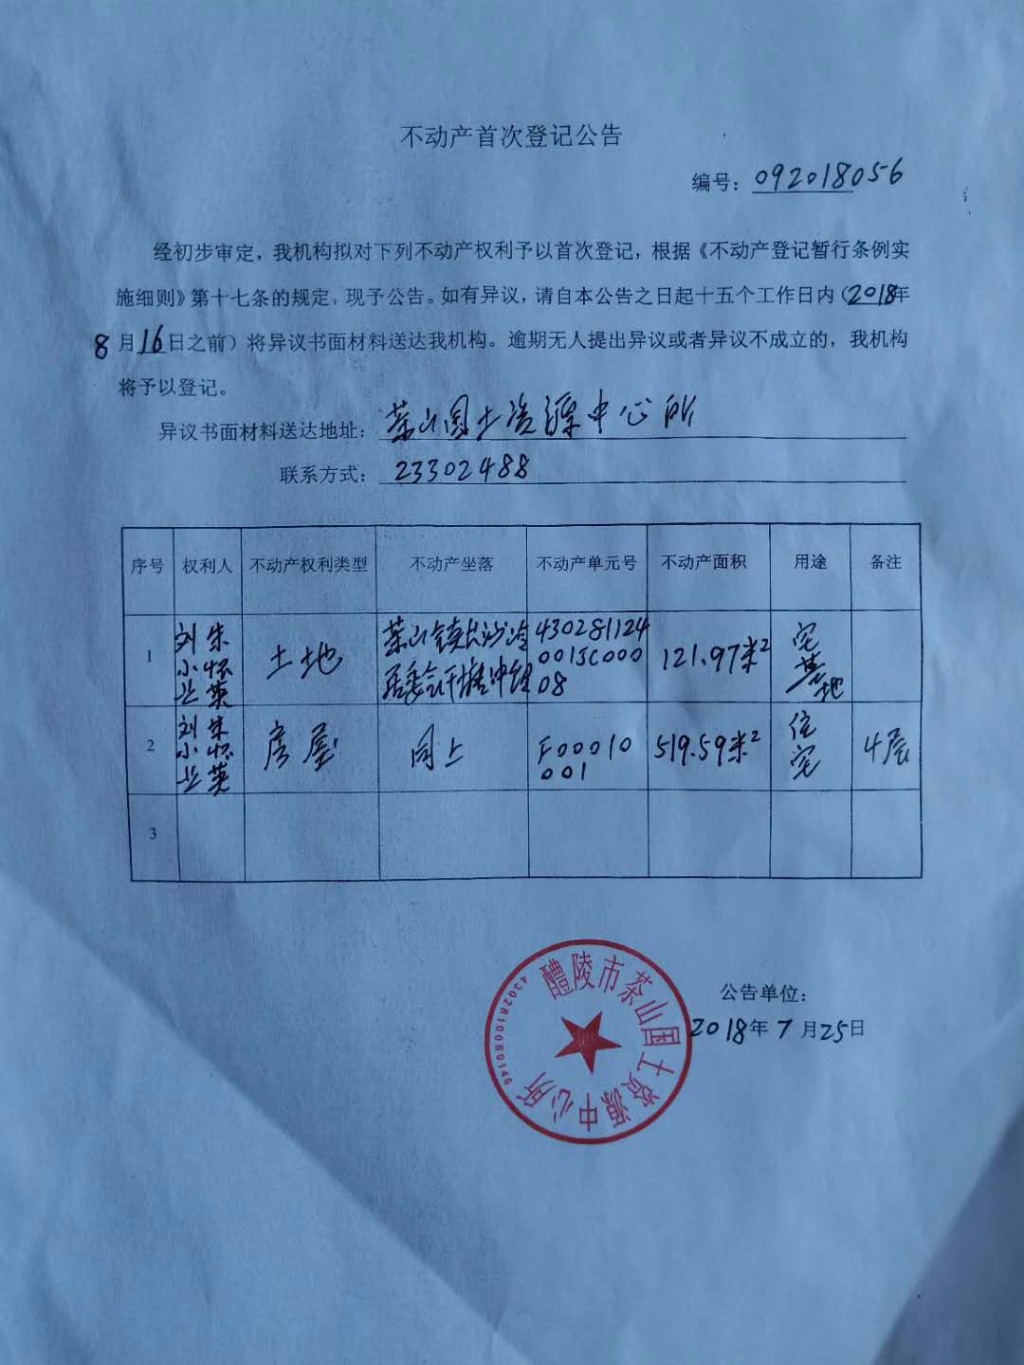 不动产首次登记公告
编号：092018056
经初步审定，我机构拟对下列不动产权利予以首次登记，根据《不动产登记暂行条例实
施细则》第十七条的规定，现予公告。如有异议，请自本公告之日起十五个工作日内（2018年
8月16日之前）将异议书面材料送达我机构。逾期无人提出异议或者异议不成立的，我机构
将予以登记。
异议书面材料送达地址：茶山国土资源中心所
联系方式：23302488
序号 权利人 不动产权利类型 不动产坐落 不动产单元号 不动产面积 用途 备注
1 刘小兰 朱怀英 土地 茶山镇长沙冲居委会 430281124001JC00008 121.97米² 宅基地
2 刘小兰 朱怀英 房屋 同上 F00010001 519.59米² 住宅 4层
3
公告单位：
2018年7月25日
醴陵市茶山国土资源中心所
4302810080146